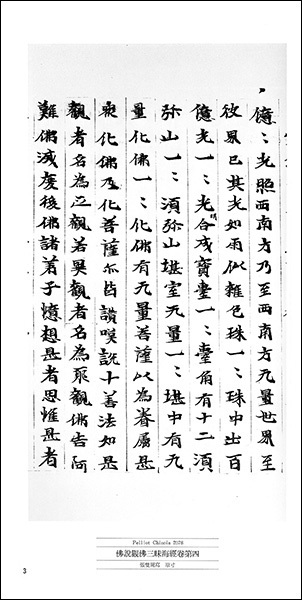 億〻光照西南方乃至西南方无量世界至
彼界已其光如雨似雜色珠一〻珠中出百
億光一〻光明合成寶臺一〻臺角有十二須
弥山一〻須弥山堪室无量一〻堪中有无
量化佛一〻化佛有无量菩薩以為眷属是
衆化佛及化菩薩亦皆讃嘆說十善法如是
觀者名為正觀若異觀者名為耶觀佛告阿
難佛滅度後佛諸弟子憶想是者思惟是者
Pelliot Chinois 2078
佛說觀佛三昧海經卷第四
原寸
3